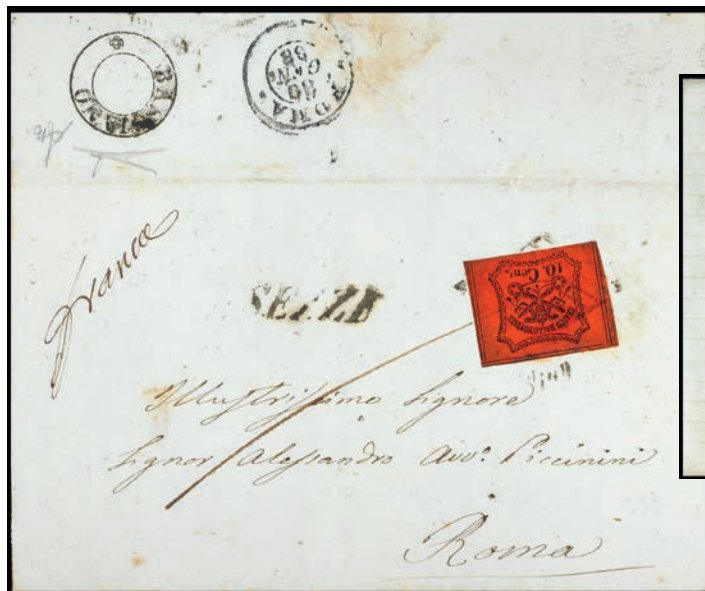 BASSIANO
ROMA
30
GEN.
68
franca
10. Cent.
SEZZE
Illustrissimo Signore
Signor Alessandro Avv.º Piccinini
Roma